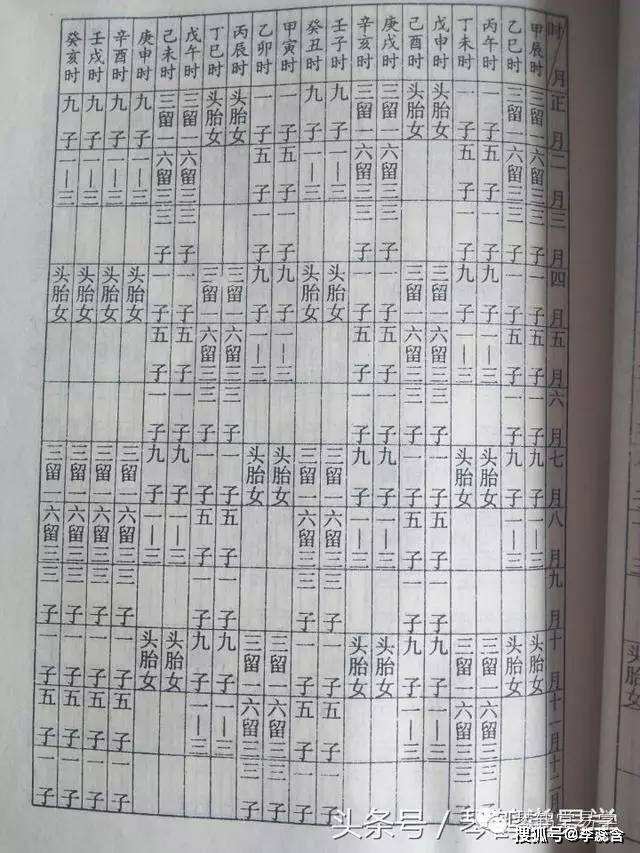 时/月 正月 二月 三月 四月 五月 六月 七月 八月 九月 十月 十一月 十二月
甲辰时 三留一 六留三 三子 一子 五子 一子 九子 一|三 头胎女
乙巳时 三留一 六留三 三子 一子 五子 一子 九子 一|三 头胎女
丙午时 一子 五子 一子 九子 一|三 头胎女 三留一 六留三 三子
丁未时 一子 五子 一子 九子 一|三 头胎女 三留一 六留三 三子
戊申时 头胎女 三留一 六留三 三子 一子 五子 一子 九子 一|三
己酉时 头胎女 三留一 六留三 三子 一子 五子 一子 九子 一|三
庚戌时 三留一 六留三 三子 一子 五子 一子 九子 一|三 头胎女
辛亥时 三留一 六留三 三子 一子 五子 一子 九子 一|三 头胎女
壬子时 九子 一|三 头胎女 三留一 六留三 三子 一子 五子 一子
癸丑时 九子 一|三 头胎女 三留一 六留三 三子 一子 五子 一子
甲寅时 一子 五子 一子 九子 一|三 头胎女 三留一 六留三 三子
乙卯时 一子 五子 一子 九子 一|三 头胎女 三留一 六留三 三子
丙辰时 头胎女 三留一 六留三 三子 一子 五子 一子 九子 一|三
丁巳时 头胎女 三留一 六留三 三子 一子 五子 一子 九子 一|三
戊午时 三留一 六留三 三子 一子 五子 一子 九子 一|三 头胎女
己未时 三留一 六留三 三子 一子 五子 一子 九子 一|三 头胎女
庚申时 九子 一|三 头胎女 三留一 六留三 三子 一子 五子 一子
辛酉时 九子 一|三 头胎女 三留一 六留三 三子 一子 五子 一子
壬戌时 九子 一|三 头胎女 三留一 六留三 三子 一子 五子 一子
癸亥时 九子 一|三 头胎女 三留一 六留三 三子 一子 五子 一子
头胎女
头条号/
搜狐号@李蕊含